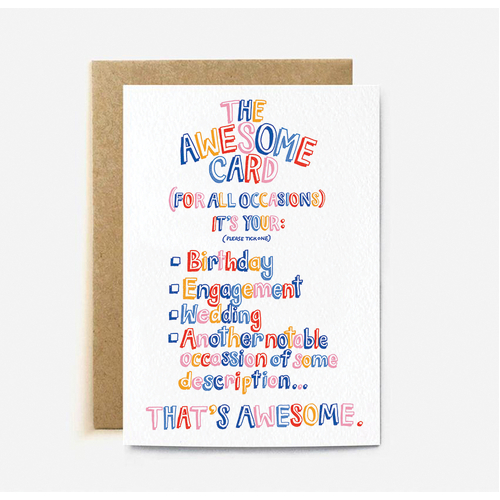 THE
AWESOME
CARD
(FOR ALL OCCASIONS)
IT'S YOUR:
(PLEASE TICK ONE)
Birthday
Engagement
Wedding
Another notable
occassion of some
description...
THAT'S AWESOME.